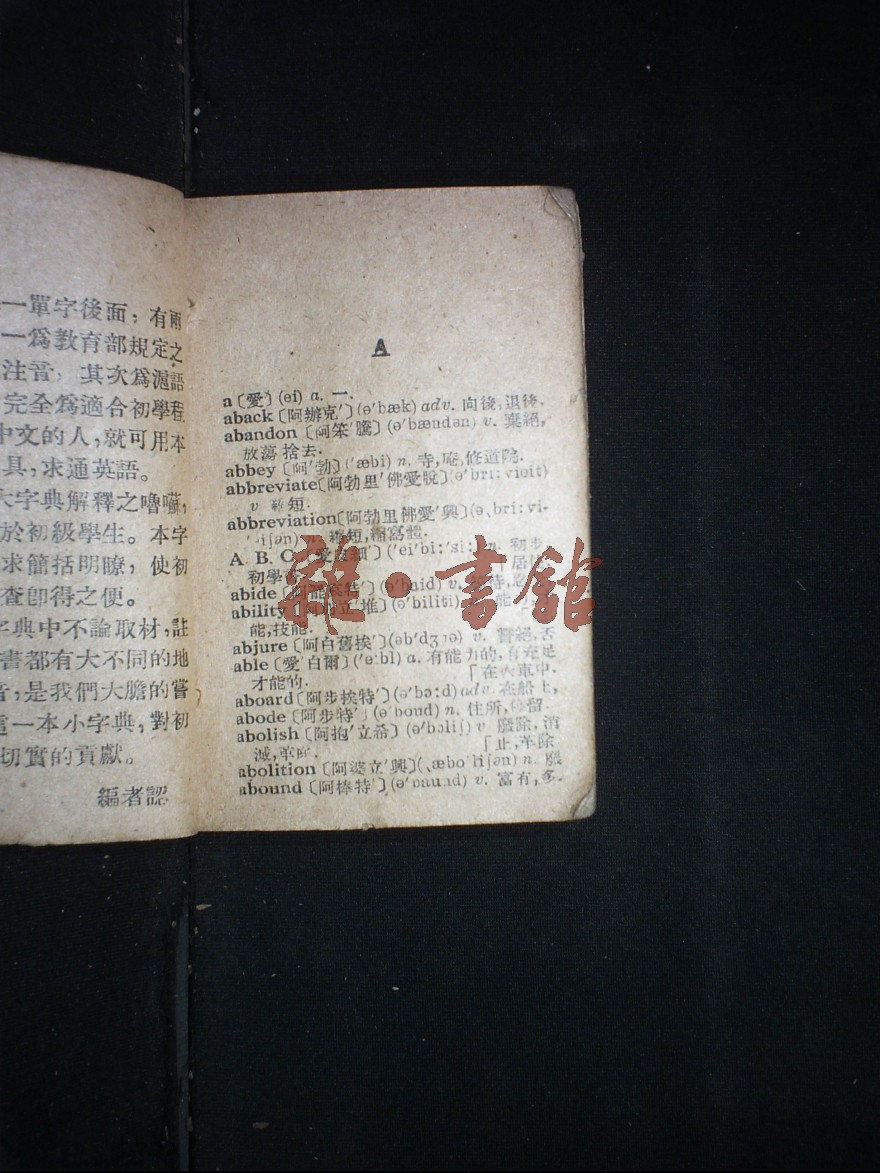 一單字後面，有兩
一爲教育部規定之
注音，其次爲滬語
完全爲適合初學程
中文的人，就可用本
具，求通英語。
大字典解釋之嚕囌，
於初級學生。本字
求簡括明瞭，使初
查卽得之便。
字典中不論取材，註
書都有大不同的地
音，是我們大膽的嘗
這一本小字典，對初
切實的貢獻。
編者認
A
a〔愛〕(ei) a. 一.
aback〔阿辦克′〕(ə′bæk) adv. 向後，退後.
abandon〔阿笨′騰〕(ə′bændən) v. 棄絕，
放蕩 捨去.
abbey〔阿′勃〕(′æbi) n. 寺，庵，修道院.
abbreviate〔阿勃里′佛愛脫〕(ə′bri:vieit)
v 縮短.
abbreviation〔阿勃里佛愛′興〕(ə,bri:vi-
縮短，縮寫體.
A. B. C. (′ei′bi:′si:) n. 初步
初學
abide (ə′baid) v.
ability (ə′biliti)
能，技能.
abjure〔阿白舊挨′〕 v.
able〔愛′白爾〕(′eibl) a. 有能力的，有充足
才能的. 「在火車中.
aboard〔阿步挨特′〕(ə′bə:d) adv. 在船上，
abode〔阿步特′〕(ə′boud) n. 住所，
abolish〔阿抱′立希〕(ə′bəliʃ) v. 廢除，消
滅， 「止，革除
abolition〔阿婆立′興〕(,æbo′liʃən) n. 廢
abound〔阿棒特′〕(ə′baund) v. 富有，多.
雜·書館